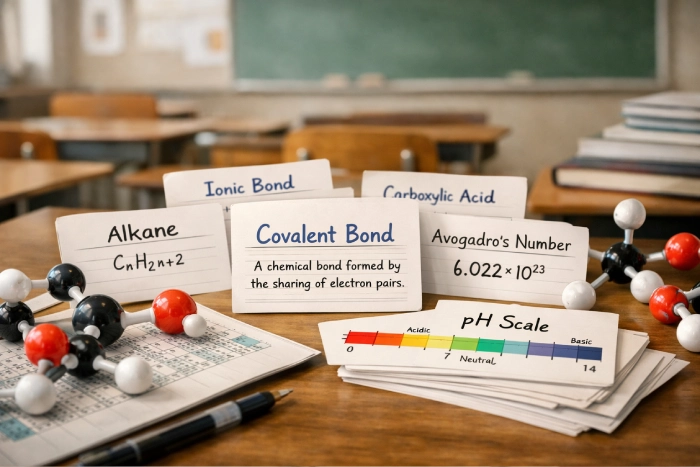 Ionic Bond
Carboxylic Acid
Alkane
CₙH₂ₙ₊₂
Covalent Bond
A chemical bond formed by
the sharing of electron pairs.
Avogadro's Number
6.022 × 10²³
pH Scale
Acidic
Basic
0
7 Neutral
14